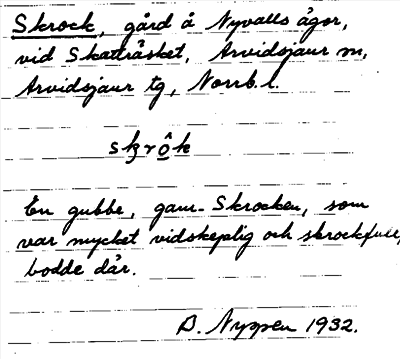 Skrock, gård å Nyvalls ägor,
vid Skatträsket, Arvidsjaur sn,
Arvidsjaur tg, Norrb. l.
skrôk
En gubbe, gam-Skrocken, som
var mycket vidskeplig och skrockfull,
bodde där.
D. Nyssen 1932.